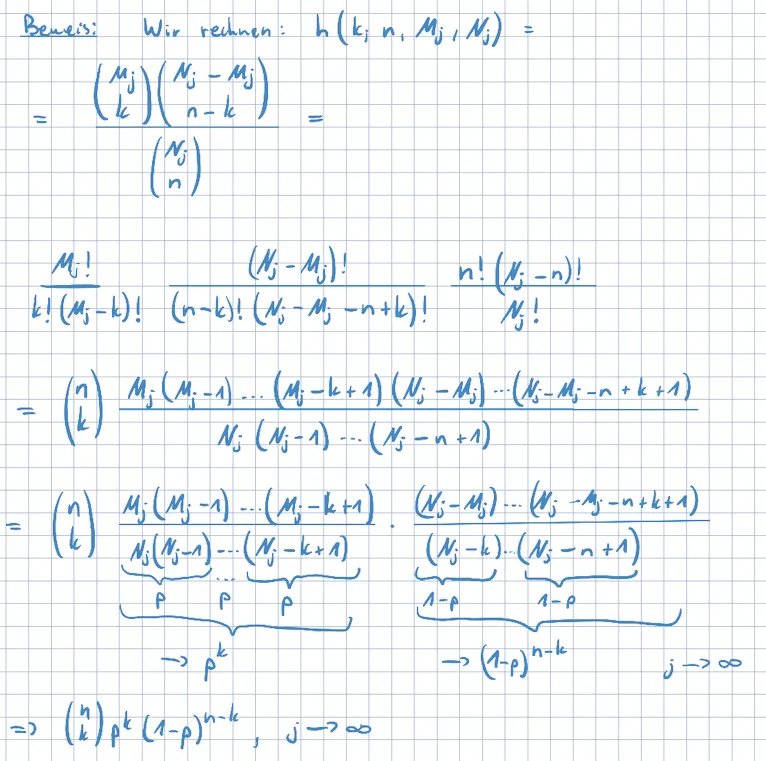 Beweis: Wir rechnen: h(k; n, M_j, N_j) =
= \frac{\binom{M_j}{k} \binom{N_j - M_j}{n - k}}{\binom{N_j}{n}} =
\frac{M_j!}{k! (M_j - k)!} \frac{(N_j - M_j)!}{(n-k)! (N_j - M_j - n + k)!} \frac{n! (N_j - n)!}{N_j!}
= \binom{n}{k} \frac{M_j (M_j - 1) ... (M_j - k + 1) (N_j - M_j) ... (N_j - M_j - n + k + 1)}{N_j (N_j - 1) ... (N_j - n + 1)}
= \binom{n}{k} \frac{M_j (M_j - 1) ... (M_j - k + 1)}{N_j (N_j - 1) ... (N_j - k + 1)} · \frac{(N_j - M_j) ... (N_j - M_j - n + k + 1)}{(N_j - k) ... (N_j - n + 1)}
p ... p p 1-p 1-p
→ p^k → (1-p)^{n-k} j → ∞
=> \binom{n}{k} p^k (1-p)^{n-k}, j → ∞